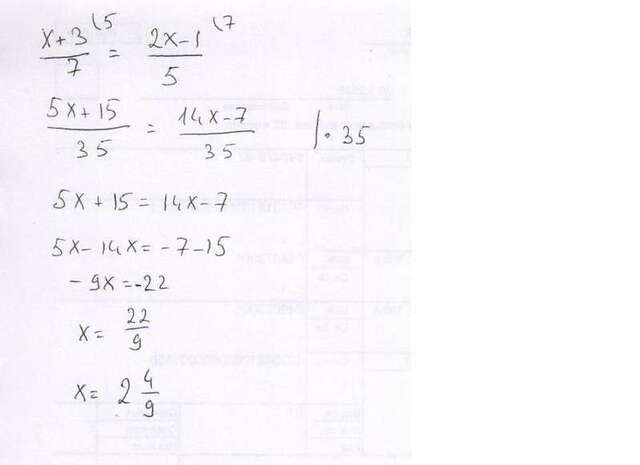 x+3(5/7 = 2x-1(7/5
5x+15/35 = 14x-7/35 |·35
5x+15 = 14x-7
5x-14x=-7-15
-9x=-22
x= 22/9
x= 2 4/9